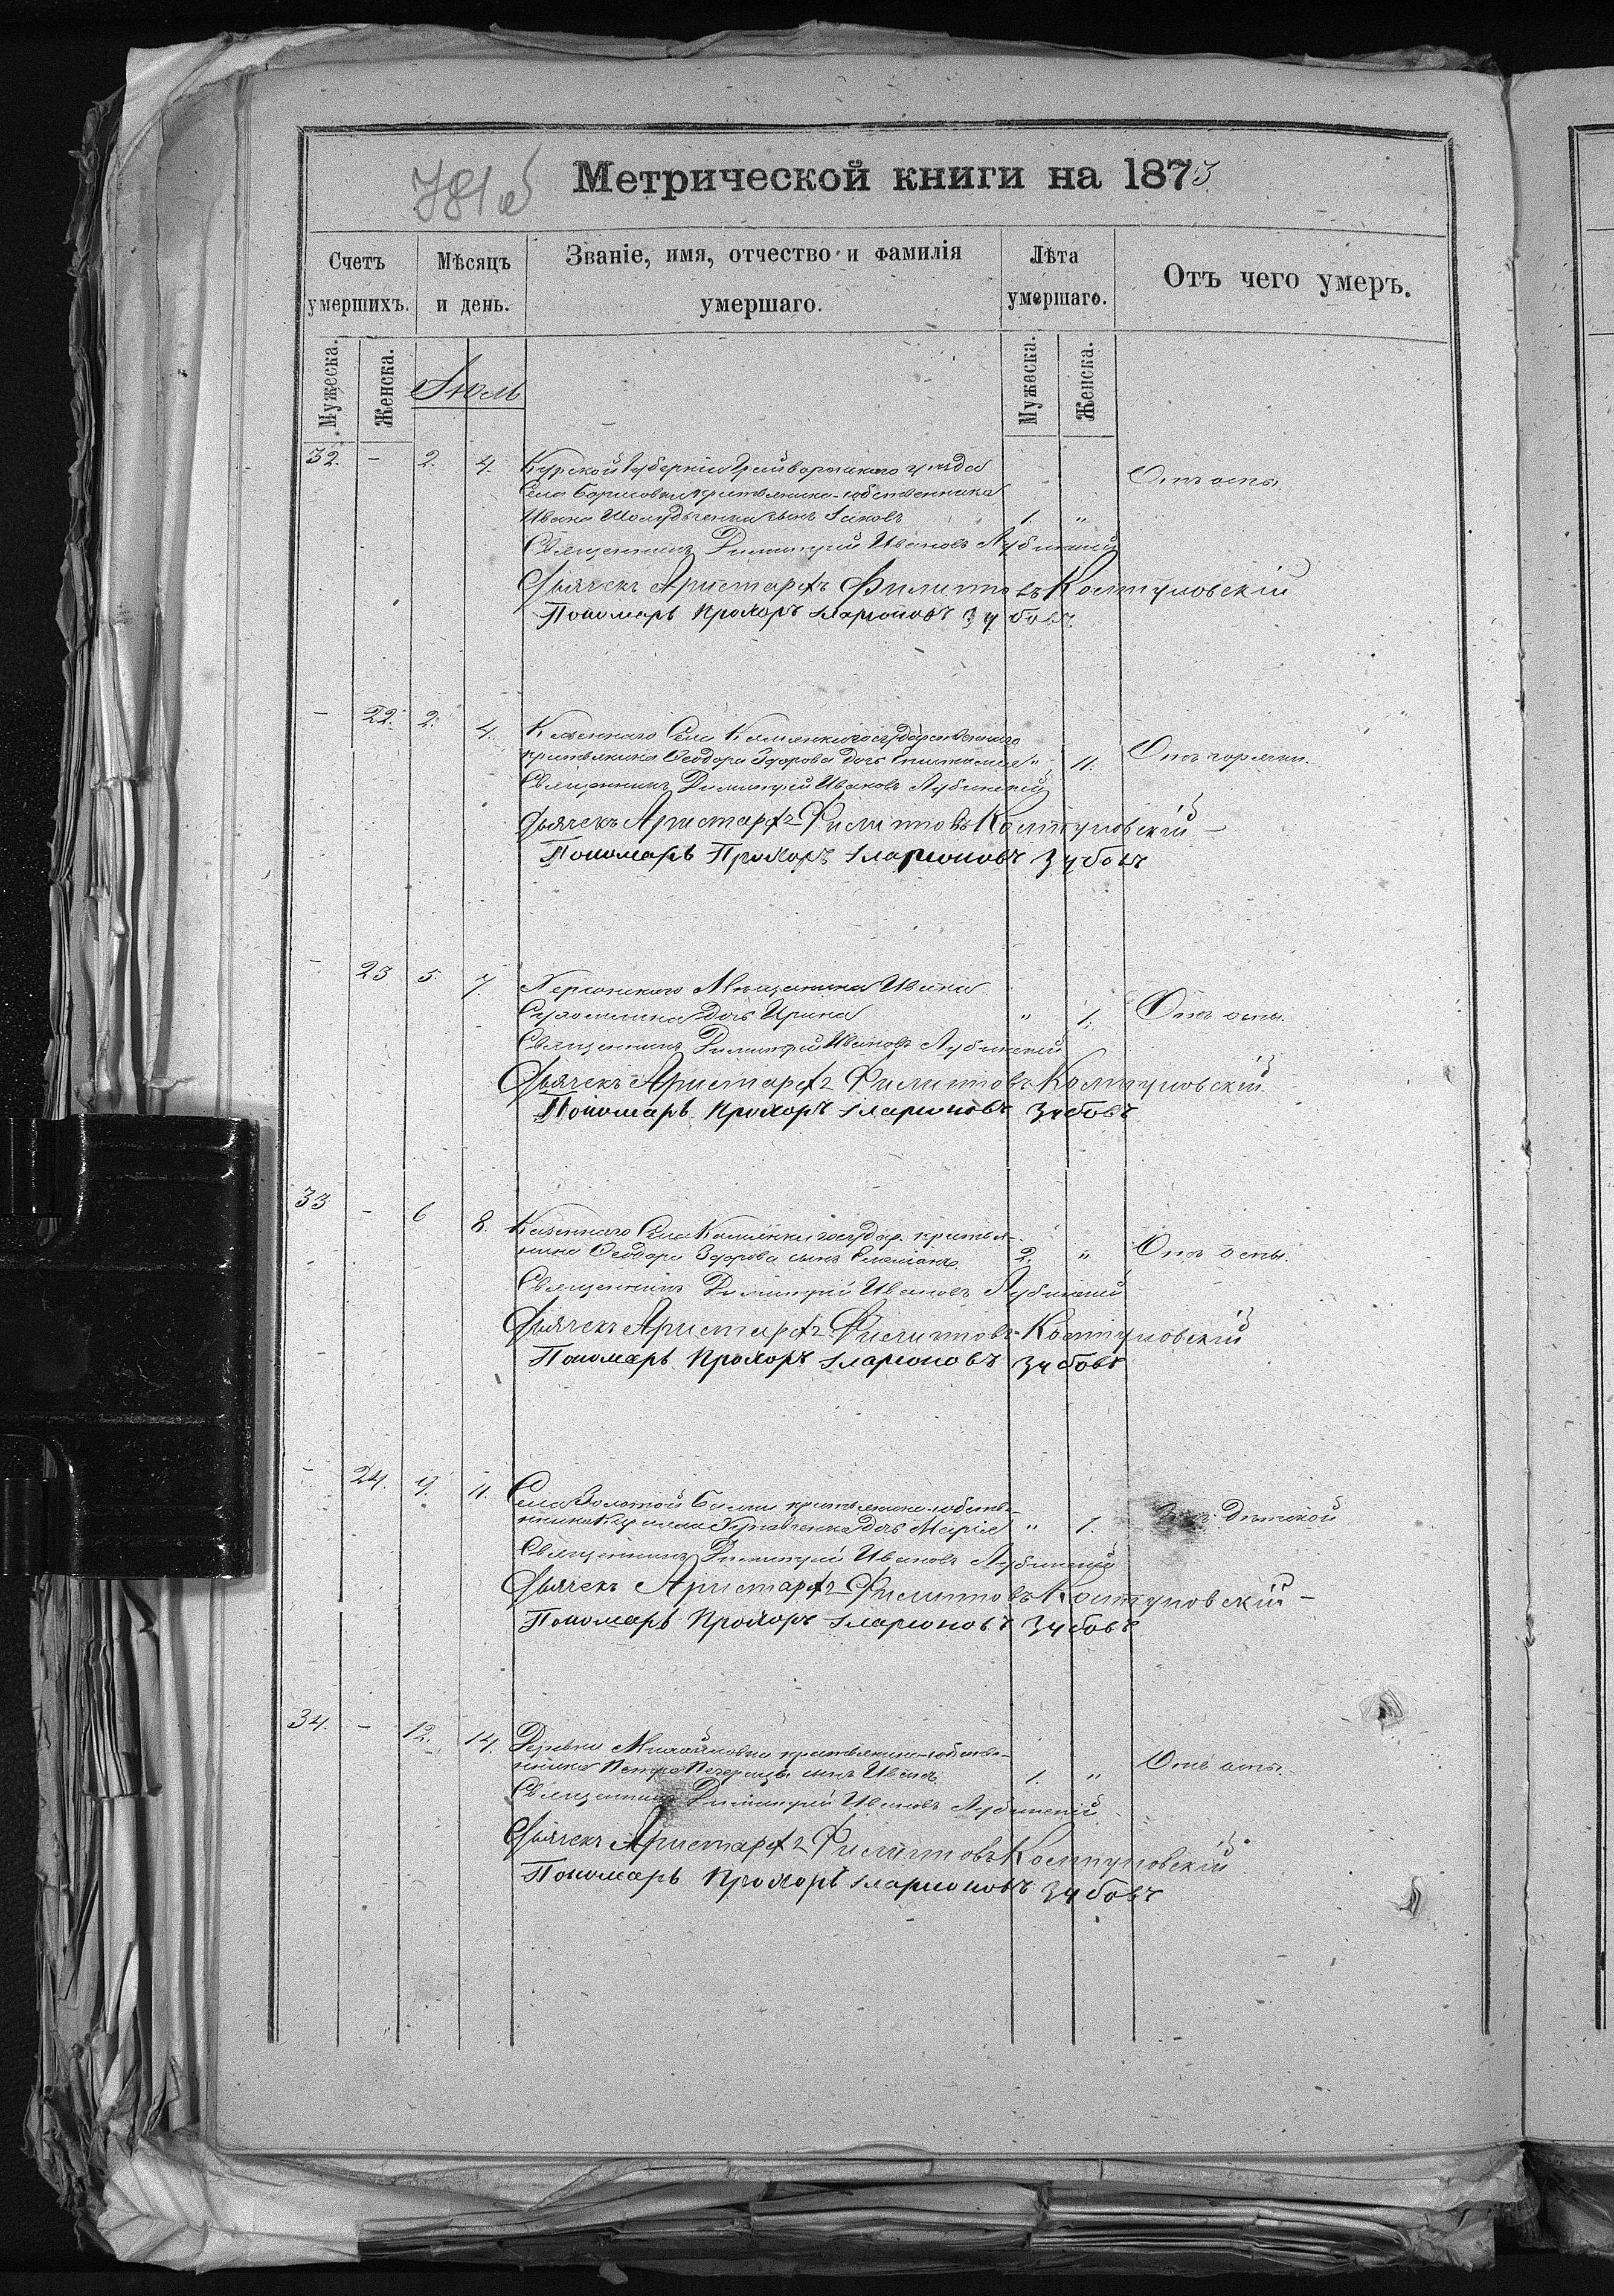 781 об
Метрической книги на 1873
Счетъ умершихъ.
Мѣсяцъ и день.
Званіе, имя, отчество и фамилія умершаго.
Лѣта умершаго.
Отъ чего умеръ.
Мужеска.
Женска.
Іюль
Мужеска.
Женска.
32. - 2. 4. Курской Губерніи Грайворонскаго уѣзда
Села Борисовки крестьянина-собственника Отъ оспы
Ивана сынъ Іаковъ 1. "
Священникъ Димитрій Ивановъ Лубинскій
Дьячекъ Аристархъ Филиповъ Колтуновскій
Пономарь Прохоръ Иларіоновъ Зубовъ
- 22. 2. 4. Казеннаго Села Каменки государственнаго
крестьянина Ѳеодора Здорова дочь " 11. Отъ горячки.
Священникъ Димитрій Ивановъ Лубинскій
Дьячекъ Аристархъ Филиповъ Колтуновскій
Пономарь Прохоръ Иларіоновъ Зубовъ
- 23 5. 7. Херсонскаго Мѣщанина Ивана
дочь Ирина " 1. Отъ оспы.
Священникъ Димитрій Ивановъ Лубинскій
Дьячекъ Аристархъ Филиповъ Колтуновскій
Пономарь Прохоръ Иларіоновъ Зубовъ
33 - 6 8. Казеннаго Села Каменки государ. крестья-
нина Ѳеодора Здорова сынъ 2. " Отъ оспы.
Священникъ Димитрій Ивановъ Лубинскій
Дьячекъ Аристархъ Филиповъ Колтуновскій
Пономарь Прохоръ Иларіоновъ Зубовъ
- 24. 9. 11. Села Золотой Балки крестьянина-собстве-
нника Кирилла дочь Марія " 1. Дѣтской
Священникъ Димитрій Ивановъ Лубинскій
Дьячекъ Аристархъ Филиповъ Колтуновскій
Пономарь Прохоръ Иларіоновъ Зубовъ
34. - 12. 14. Деревни Михайловки крестьянина-собстве-
нника Петра сынъ Иванъ 1. " Отъ оспы.
Священникъ Димитрій Ивановъ Лубинскій
Дьячекъ Аристархъ Филиповъ Колтуновскій
Пономарь Прохоръ Иларіоновъ Зубовъ